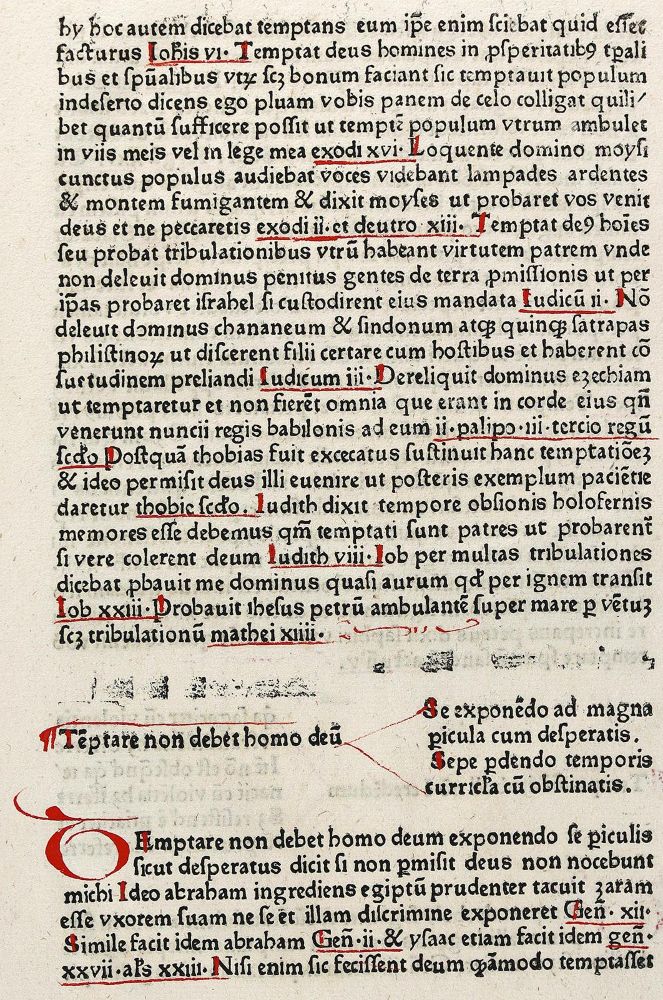 hy hoc autem dicebat temptans eum ip̄e enim sciebat quid esset
facturus Iohīs vi· Temptat deus homines in ꝓsperitatibꝰ tꝑali
bus et spūalibus vtꝝ scꝫ bonum faciant sic temptauit populum
indeserto dicens ego pluam vobis panem de celo colligat quili/
bet quantū sufficere possit ut temptē populum vtrum ambulet
in viis meis vel in lege mea exodi xvi· Loquente domino moysi
cunctus populus audiebat voces videbant lampades ardentes
& montem fumigantem & dixit moyses ut probaret vos venit
deus et ne peccaretis exodi ii· et deutro xiii. Temptat deꝰ hoīes
seu probat tribulationibus vtrū habeant virtutem patrem vnde
non deleuit dominus penitus gentes de terra ꝓmissionis ut per
ip̄as probaret israhel si custodirent eius mandata Iudicū ii· Nō
deleuit dominus chananeum & sindonum atqꝫ quinqꝫ satrapas
philistinoꝝ ut discerent filii certare cum hostibus et haberent cō
suetudinem preliandi Iudicum iii· Dereliquit dominus ezechiam
ut temptaretur et non fierēt omnia que erant in corde eius qn̄
venerunt nuncii regis babilonis ad eum ii·palipo·iii·tercio regū
scd̄o Postquā thobias fuit excecatus sustinuit hanc temptatiōeꝫ
& ideo permisit deus illi euenire ut posteris exemplum paciētie
daretur thobie scd̄o. Iudith dixit tempore obsionis holofernis
memores esse debemus qm̄ temptati sunt patres ut probarent̄
si vere colerent deum Iudith viii· Iob per multas tribulationes
dicebat ꝓbauit me dominus quasi aurum qd̄ per ignem transit
Iob xxiii· Probauit ihesus petrū ambulantē super mare ꝑ vētuꝫ
scꝫ tribulationū mathei xiiii·
¶ Tēptare non debet homo deū
Se exponēdo ad magna
ꝑicula cum desperatis.
Sepe ꝑdendo temporis
curricła cū obstinatis.
TEmptare non debet homo deum exponendo se ꝑiculis
sicut desperatus dicit si non ꝑmisit deus non nocebunt
michi Ideo abraham ingrediens egiptū prudenter tacuit ꝫaram
esse vxorem suam ne se et illam discrimine exponeret Gen̄· xii·
Simile facit idem abraham Gen̄·ii·& ysaac etiam facit idem gen̄·
xxvii·al̄s xxiii· Nisi enim sic fecissent deum quāmodo temptasset